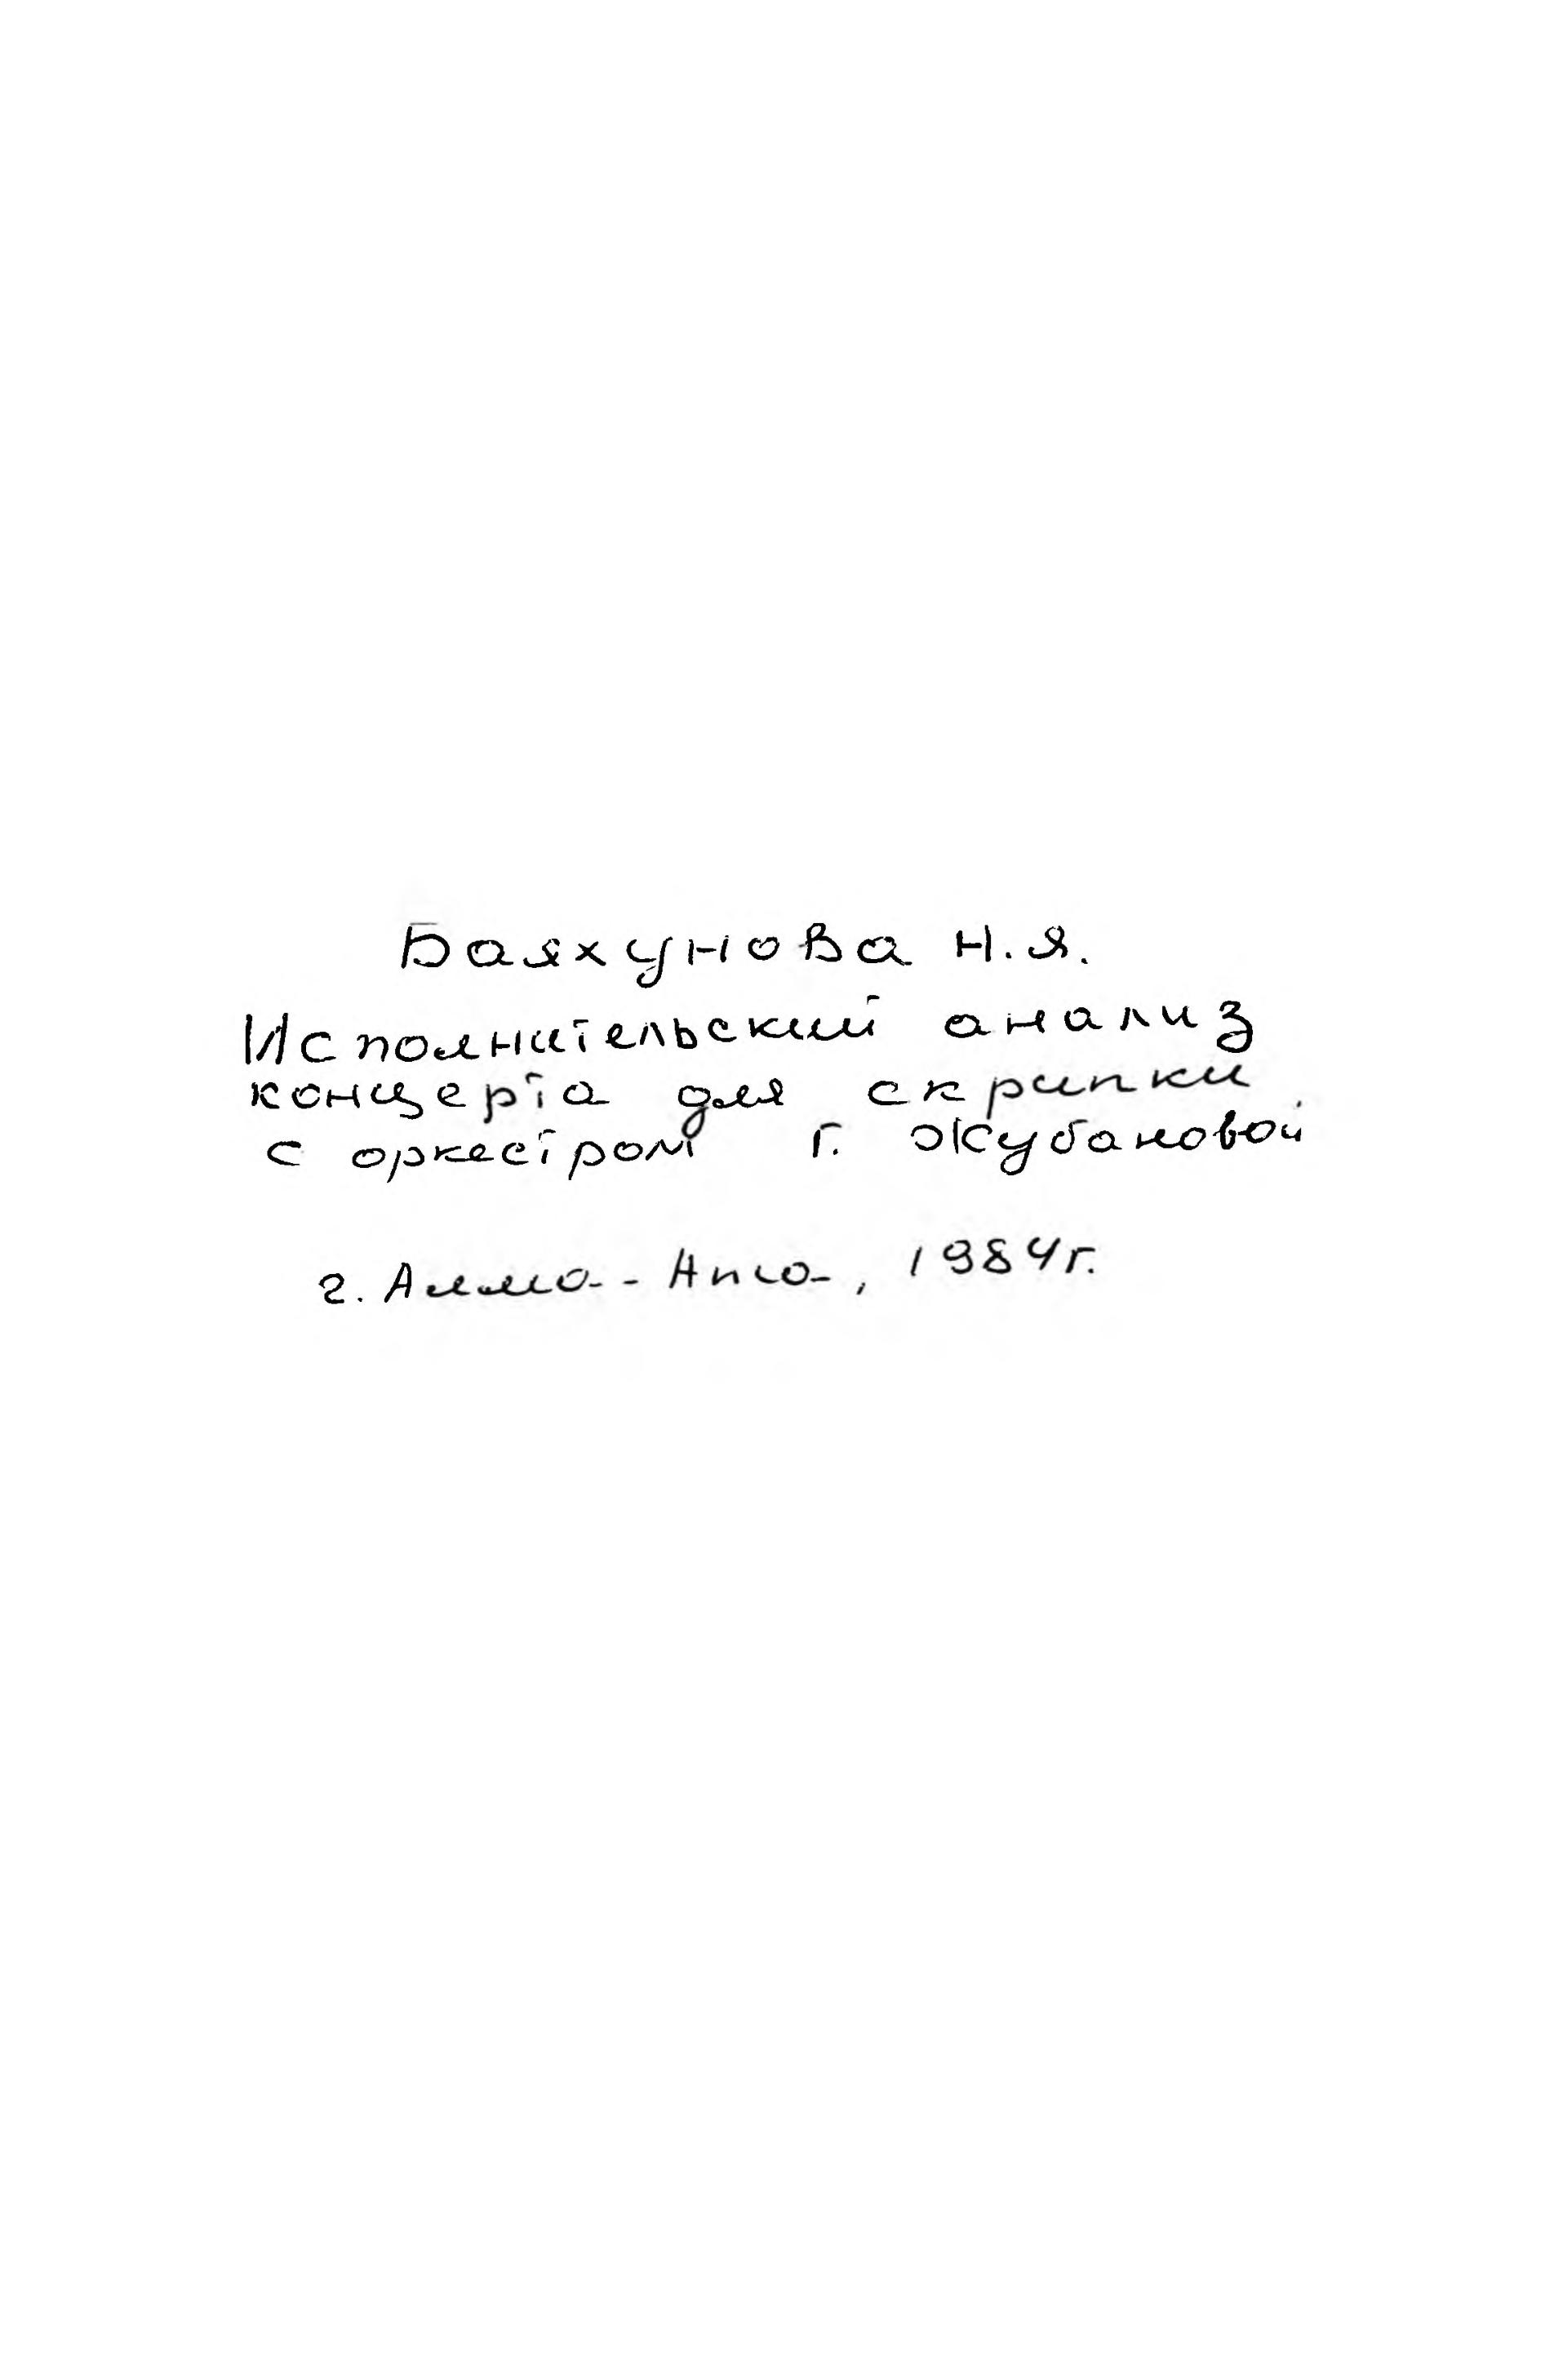 Баяхунова Н.Я.
Исполнительский анализ
концерта для скрипки
с оркестром Г. Жубановой
г. Алма-Ата, 1984г.